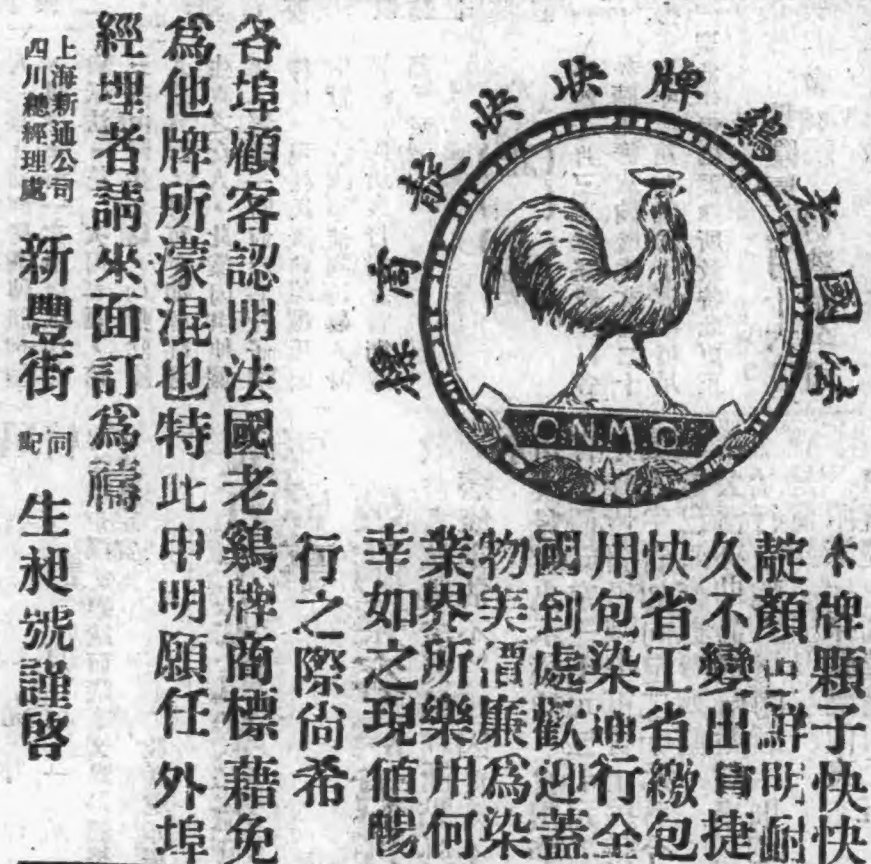 法國老鷄牌快快靛商標
C.N.M.C.
本牌顆子快快
靛顏色鮮明耐
久不變出貨捷
快省工省繳包
用包染通行全
國到處歡迎蓋
物美價廉爲染
業界所樂用何
幸如之現值暢
行之際尙希
各埠顧客認明法國老鷄牌商標藉免
爲他牌所濛混也特此申明願任外埠
經理者請來面訂爲禱
上海新通公司
四川總經理處
新豐街 同記 生昶號謹啓